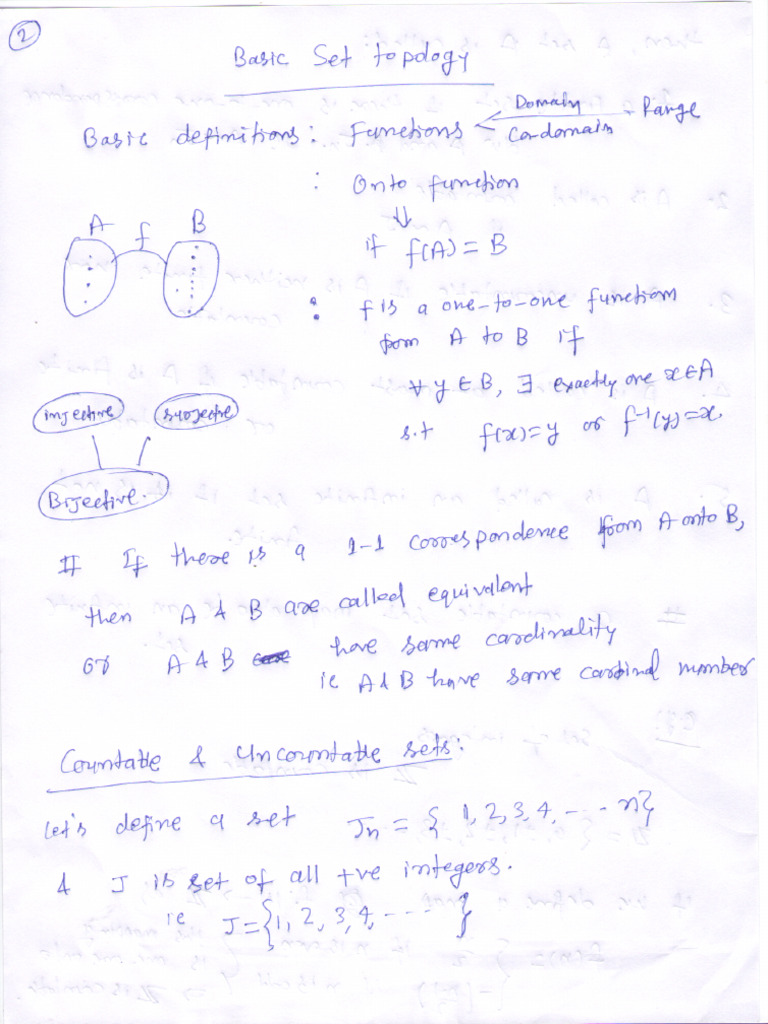 2
Basic Set topology
Basic definitions: Functions < Domain Co-domain - Range
: Onto function
⇓
A f B
if f(A) = B
: f is a one-to-one function
from A to B if
∀ y ∈ B, ∃ exactly one x ∈ A
s.t f(x)=y or f⁻¹(y)=x.
injective surjective
Bijective.
# If there is a 1-1 correspondence from A onto B,
then A & B are called equivalent
or A & B have same cardinality
ie A & B have same cardinal number
Countable & Uncountable sets:
Let's define a set Jn = { 1, 2, 3, 4, - - - n}
& J is set of all +ve integers.
ie J = {1, 2, 3, 4, - - - - }